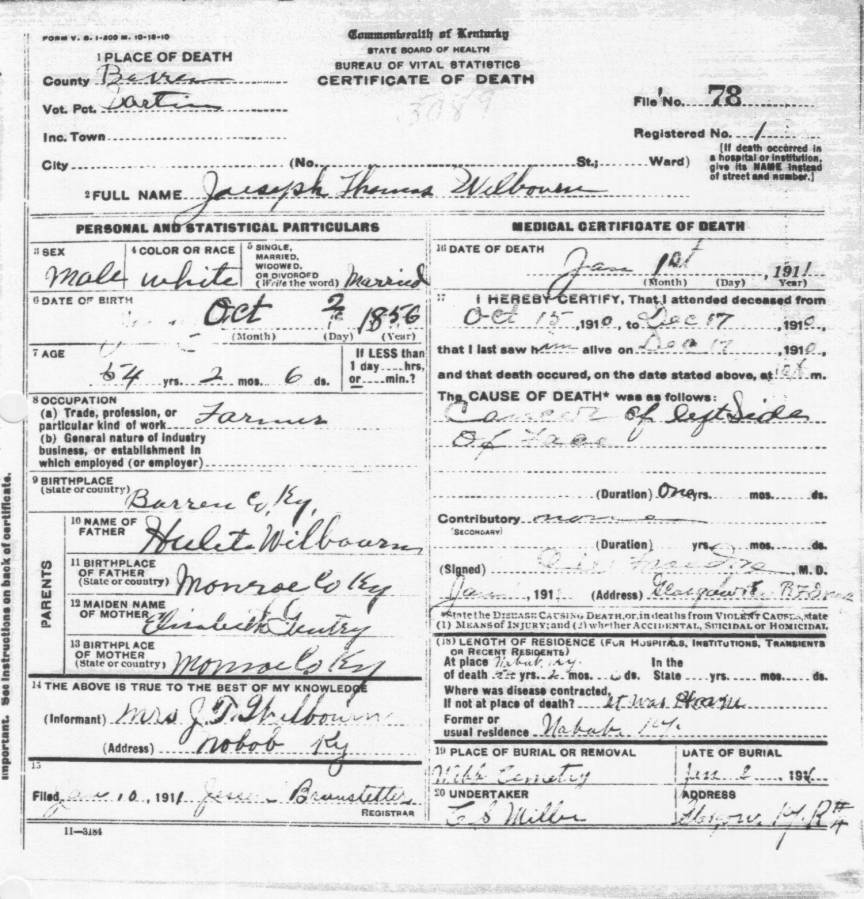 FORM V. S. 1-500 M. 10-18-10
Commonwealth of Kentucky
STATE BOARD OF HEALTH
BUREAU OF VITAL STATISTICS
CERTIFICATE OF DEATH
1 PLACE OF DEATH
County Barren
Vot. Pct.
Inc. Town
City (No. St.; Ward)
File No. 78
Registered No. 1
[If death occurred in a hospital or institution, give its NAME instead of street and number.]
2 FULL NAME Joeseph Thomas Wilbourn
PERSONAL AND STATISTICAL PARTICULARS
3 SEX
Male
4 COLOR OR RACE
white
5 SINGLE, MARRIED, WIDOWED, OR DIVORCED (Write the word) Married
6 DATE OF BIRTH
Oct 2 1856
(Month) (Day) (Year)
7 AGE
54 yrs. 2 mos. 6 ds.
If LESS than 1 day hrs, or min.?
8 OCCUPATION
(a) Trade, profession, or particular kind of work Farmer
(b) General nature of industry business, or establishment in which employed (or employer)
9 BIRTHPLACE
(State or country) Barren Co, Ky,
PARENTS
10 NAME OF FATHER Hulet Wilbourn
11 BIRTHPLACE OF FATHER (State or country) Monroe Co Ky
12 MAIDEN NAME OF MOTHER Elisabeth Gentry
13 BIRTHPLACE OF MOTHER (State or country) Monroe Co Ky
14 THE ABOVE IS TRUE TO THE BEST OF MY KNOWLEDGE
(Informant) Mrs J. T. Wilbourn
(Address) nobob Ky
15
Filed Jan 10, 1911 Jesse Branstetter
REGISTRAR
11—3184
MEDICAL CERTIFICATE OF DEATH
16 DATE OF DEATH
Jan 1st, 1911
(Month) (Day) Year)
17 I HEREBY CERTIFY, That I attended deceased from
Oct 15, 1910, to Dec 17, 1910,
that I last saw him alive on Dec 17, 1910,
and that death occured, on the date stated above, at m.
The CAUSE OF DEATH* was as follows:
Cancer of left Side
Of Face
(Duration) One yrs. mos. ds.
Contributory none
(SECONDARY)
(Duration) yrs. mos. ds.
(Signed) M. D.
Jan 191 (Address) Glasgow
*State the DISEASE CAUSING DEATH, or, in deaths from VIOLENT CAUSES, state (1) MEANS OF INJURY; and (2) whether ACCIDENTAL, SUICIDAL or HOMICIDAL
(18) LENGTH OF RESIDENCE (FOR HOSPITALS, INSTITUTIONS, TRANSIENTS OR RECENT RESIDENTS)
At place of death yrs. 2 mos. ds. In the State yrs. mos. ds.
Where was disease contracted,
If not at place of death? it was
Former or usual residence Nabob Ky.
19 PLACE OF BURIAL OR REMOVAL
Webb Cemetry
DATE OF BURIAL
Jan 2 1911
20 UNDERTAKER
Miller
ADDRESS
Glasgow, Ky. R#4
Important. See instructions on back of certificate.